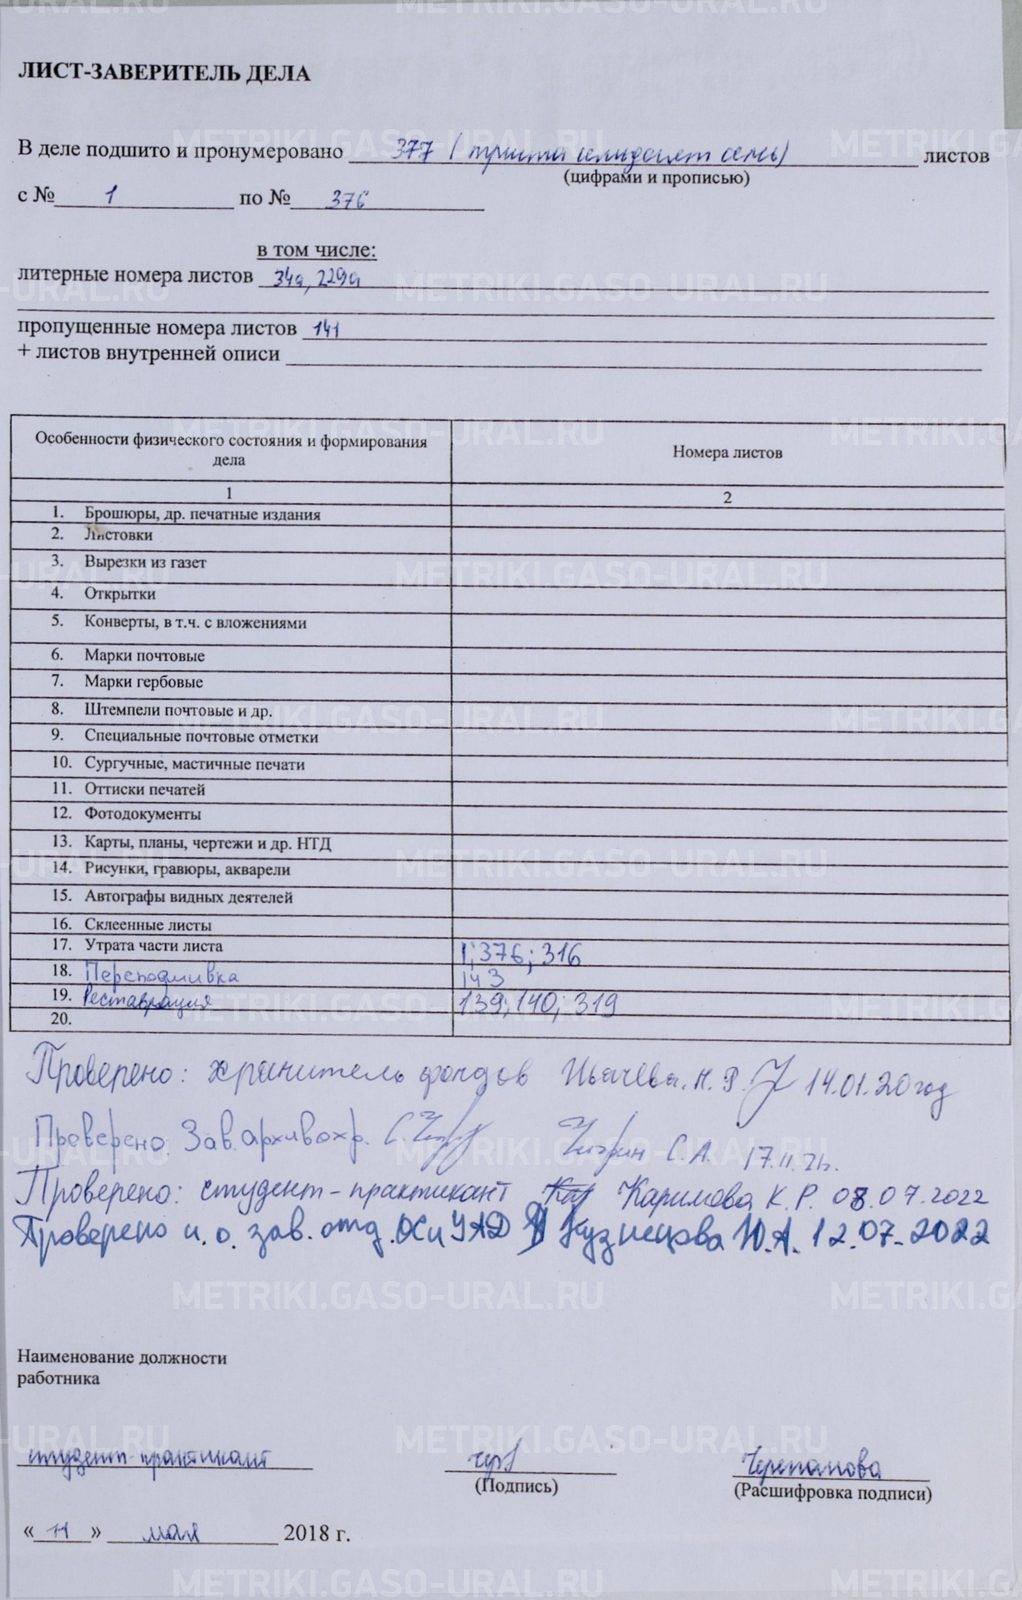 ЛИСТ-ЗАВЕРИТЕЛЬ ДЕЛА
В деле подшито и пронумеровано 377 (триста семьдесят семь) листов
(цифрами и прописью)
с № 1 по № 376
в том числе:
литерные номера листов 34а, 229а
пропущенные номера листов 141
+ листов внутренней описи
Особенности физического состояния и формирования дела Номера листов
1 2
1. Брошюры, др. печатные издания
2. Листовки
3. Вырезки из газет
4. Открытки
5. Конверты, в т.ч. с вложениями
6. Марки почтовые
7. Марки гербовые
8. Штемпели почтовые и др.
9. Специальные почтовые отметки
10. Сургучные, мастичные печати
11. Оттиски печатей
12. Фотодокументы
13. Карты, планы, чертежи и др. НТД
14. Рисунки, гравюры, акварели
15. Автографы видных деятелей
16. Склеенные листы
17. Утрата части листа 1; 376; 316
18. Переподшивка 143
19. Реставрация 139; 140; 319
20.
Проверено: хранитель фондов Н.Р. 14.01.20 год
Проверено. Зав. архивохр. Чигрин С.А. 17.11.21г.
Проверено: студент-практикант Каримова К.Р. 08.07.2022
Проверено и.о. зав. отд. ОСиУАД Кузнецова Ю.А. 12.07.2022
Наименование должности
работника
студент-практикант Черепанова
(Подпись) (Расшифровка подписи)
« 11 » мая 2018 г.
METRIKI.GASO-URAL.RU